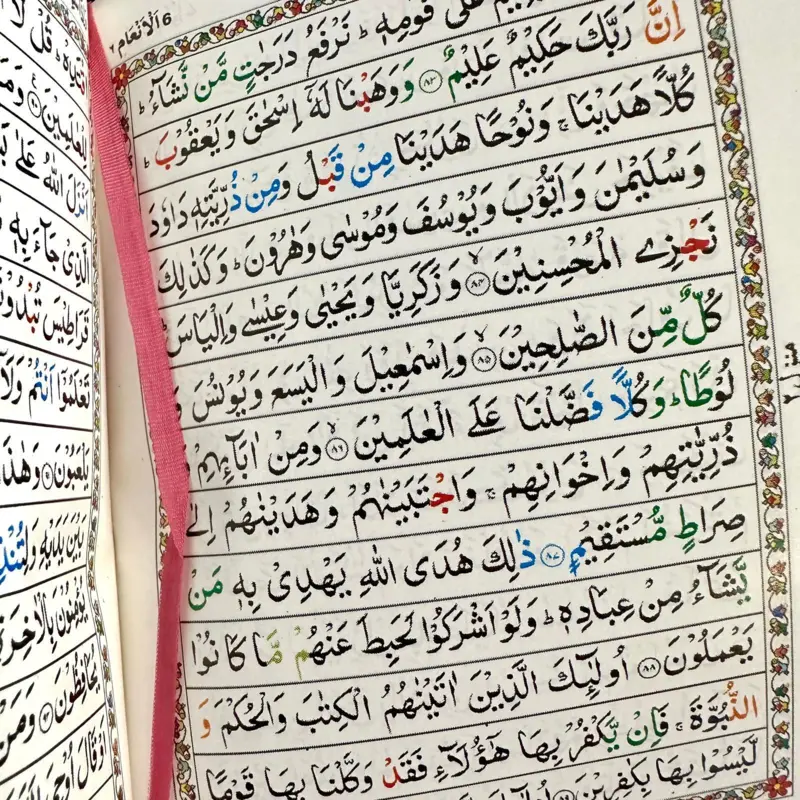 6 اَلْاَنْعَام
عَلٰى قَوْمِهٖ ؕ نَرْفَعُ دَرَجٰتٍ مَّنْ نَّشَآءُ ؕ
اِنَّ رَبَّكَ حَكِيْمٌ عَلِيْمٌ ﴿۸۳﴾ وَوَهَبْنَا لَهٗۤ اِسْحٰقَ وَيَعْقُوْبَ ؕ
كُلًّا هَدَيْنَا ۚ وَنُوْحًا هَدَيْنَا مِنْ قَبْلُ وَمِنْ ذُرِّيَّتِهٖ دَاوٗدَ
وَسُلَيْمٰنَ وَاَيُّوْبَ وَيُوْسُفَ وَمُوْسٰى وَهٰرُوْنَ ؕ وَكَذٰلِكَ
نَجْزِى الْمُحْسِنِيْنَ ﴿۸۴﴾ وَزَكَرِيَّا وَيَحْيٰى وَعِيْسٰى وَاِلْيَاسَ ؕ
كُلٌّ مِّنَ الصّٰلِحِيْنَ ﴿۸۵﴾ وَاِسْمٰعِيْلَ وَالْيَسَعَ وَيُوْنُسَ وَ
لُوْطًا ؕ وَكُلًّا فَضَّلْنَا عَلَى الْعٰلَمِيْنَ ﴿۸۶﴾ وَمِنْ اٰبَآئِهِمْ
ذُرِّيّٰتِهِمْ وَاِخْوَانِهِمْ ۚ وَاجْتَبَيْنٰهُمْ وَهَدَيْنٰهُمْ اِلٰى
صِرَاطٍ مُّسْتَقِيْمٍ ﴿۸۷﴾ ذٰلِكَ هُدَى اللّٰهِ يَهْدِىْ بِهٖ مَنْ
يَّشَآءُ مِنْ عِبَادِهٖ ؕ وَلَوْ اَشْرَكُوْا لَحَبِطَ عَنْهُمْ مَّا كَانُوْا
يَعْمَلُوْنَ ﴿۸۸﴾ اُولٰٓئِكَ الَّذِيْنَ اٰتَيْنٰهُمُ الْكِتٰبَ وَالْحُكْمَ وَ
النُّبُوَّةَ ۚ فَاِنْ يَّكْفُرْ بِهَا هٰٓؤُلَآءِ فَقَدْ وَكَّلْنَا بِهَا قَوْمًا
لَّيْسُوْا بِهَا بِكٰفِرِيْنَ
قُلْ لَاۤ
لِلْعٰلَمِيْنَ
اَنْزَلَ اللّٰهُ عَلٰى
الَّذِىْ جَآءَ بِهٖ
قَرَاطِيْسَ
تَعْلَمُوْۤا اَنْتُمْ وَلَاۤ
يَلْعَبُوْنَ
بَيْنَ يَدَيْهِ
يُؤْمِنُوْنَ
يُحَافِظُوْنَ وَمَنْ
اَوْ قَالَ اُوْحِىَ